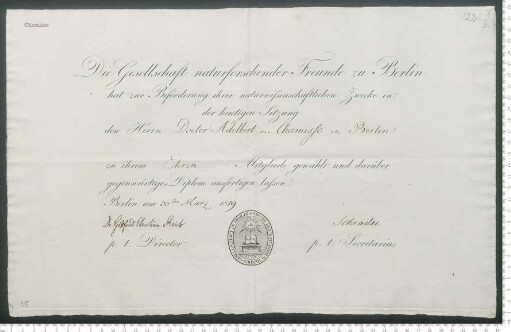 Chamisso
Die Gesellschaft naturforschender Freunde zu Berlin
hat zur Beförderung ihrer naturwissenschaftlichen Zwecke in
der heutigen Sitzung
den Herrn Doctor Adelbert von Chamisso in Berlin
zu ihrem Ehren- Mitgliede gewählt und darüber
gegenwärtiges Diplom ausfertigen lassen.
Berlin am 30ten März 1819
p. t. Director
p. t. Secretarius